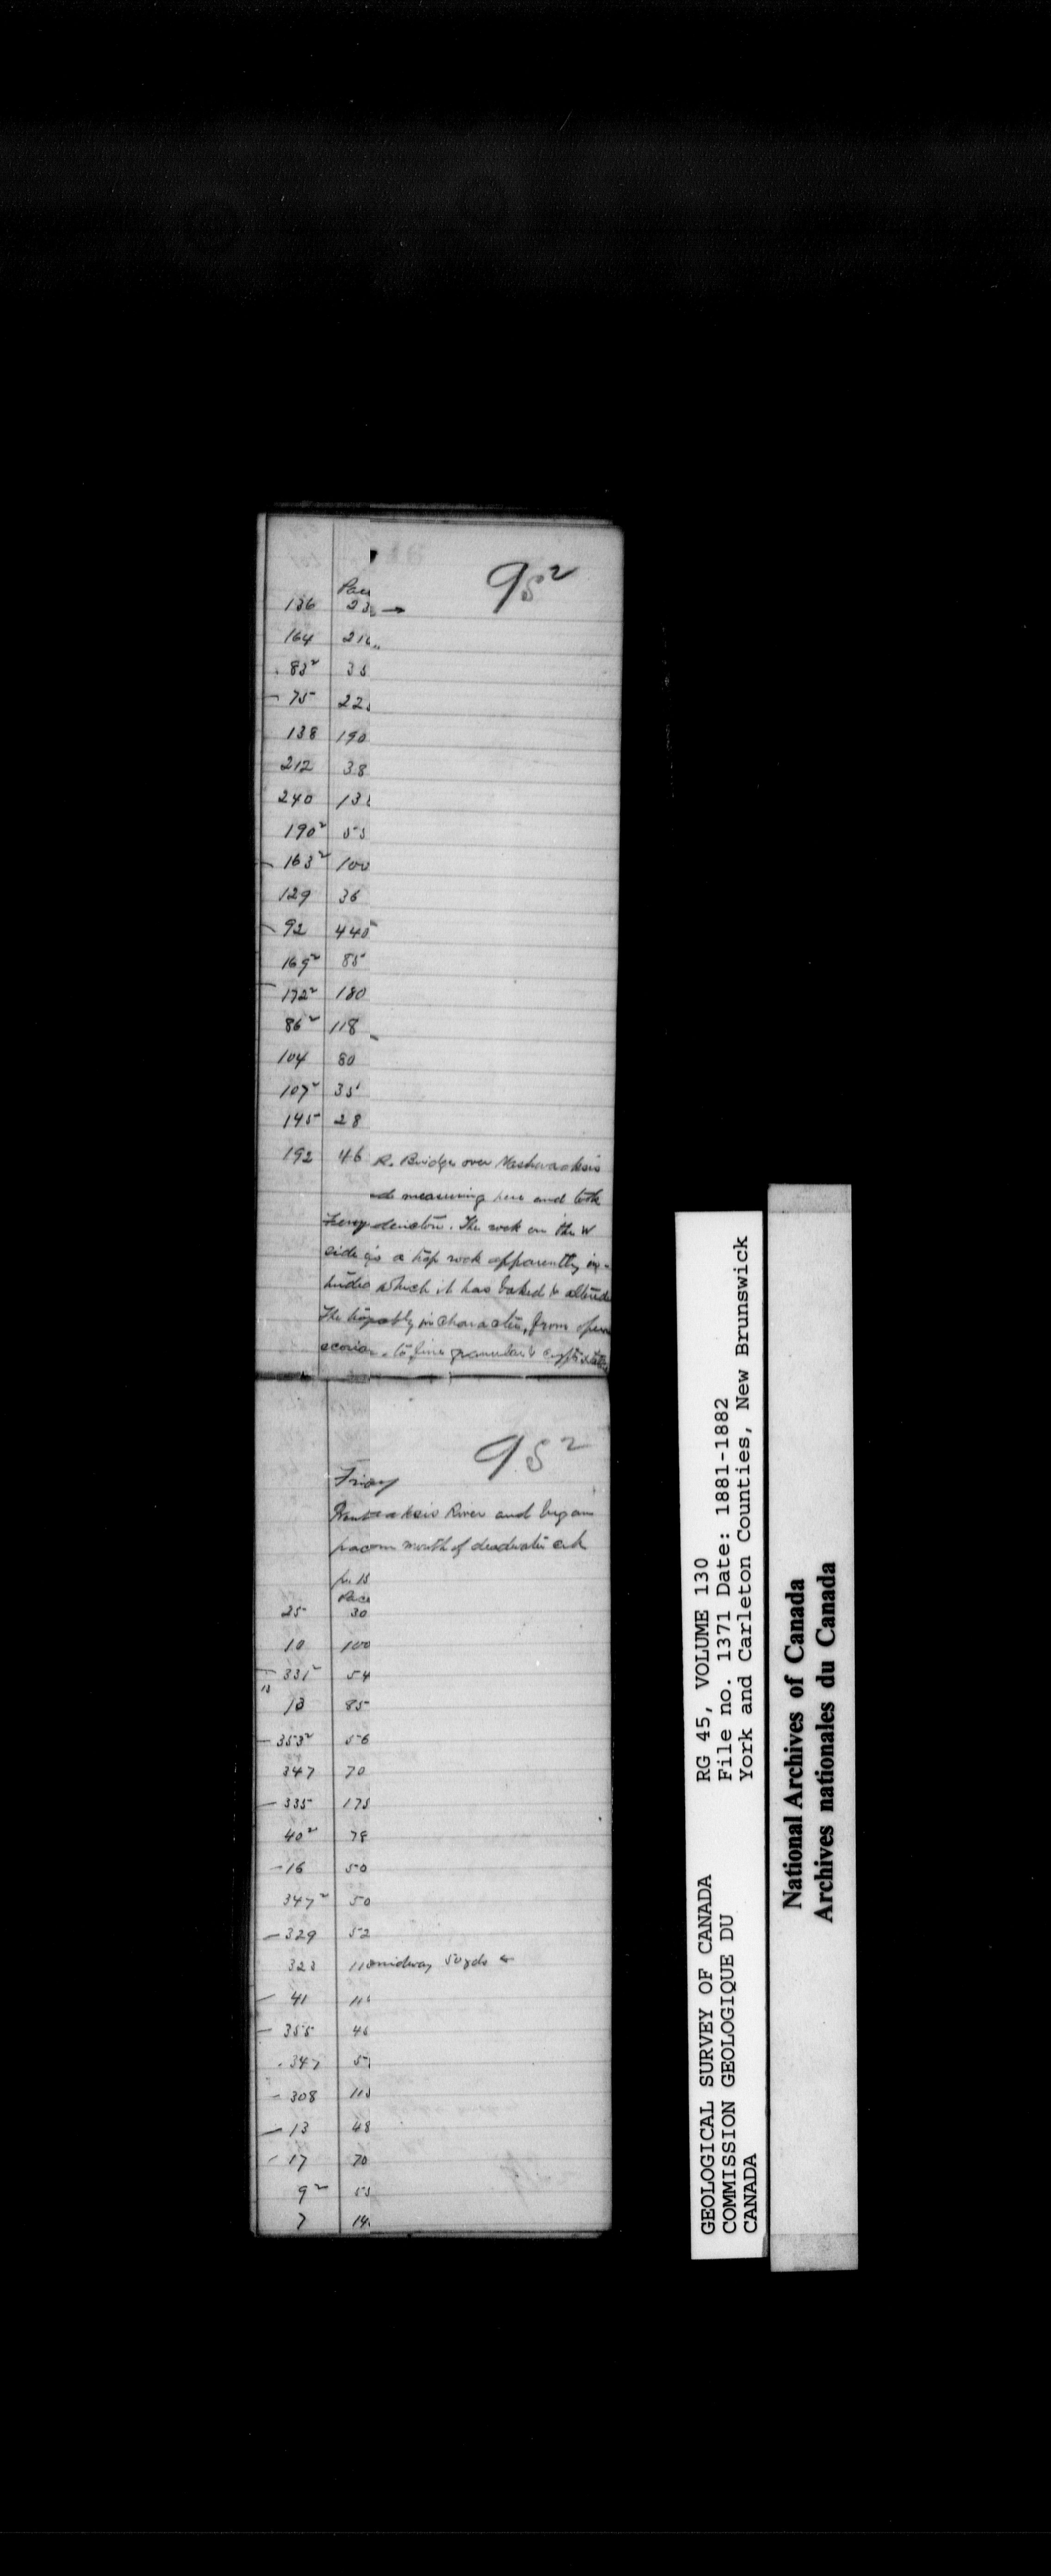 95²
Pace
136 23 →
164 216 "
83² 35
— 75 22
138 190
212 38
240 13
190² 55
— 163² 100
129 36
— 92 440
169² 85
— 172² 180
86² 118
104 80
107² 35
145 28
192 46 R. Bridge over Nashwaaksis
measuring here and took
The rock on the W
side is a trap rock apparently in-
which it has baked & altered
The in character, from
to fine granular &
95²
Went aksis River and began
mouth of deadwater
Pace
25 30
10 100
— 331² 54
13
13 85
— 353² 56
347 70
— 335 175
40² 78
- 16 50
347² 50
— 329 52
323 110 midway 50 yds ←
— 41 11
— 355 46
- 347 5
- 308 115
— 13 48
- 17 70
9² 55
7 14
GEOLOGICAL SURVEY OF CANADA
COMMISSION GEOLOGIQUE DU
CANADA
RG 45, VOLUME 130
File no. 1371 Date: 1881-1882
York and Carleton Counties, New Brunswick
National Archives of Canada
Archives nationales du Canada